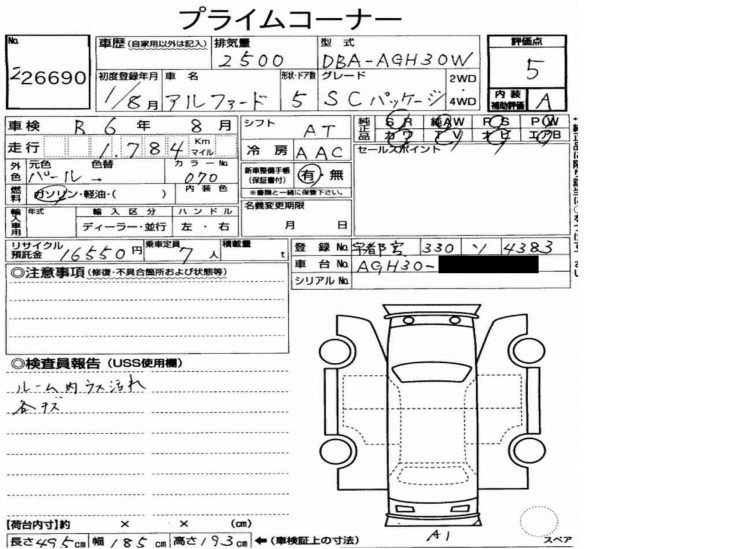 プライムコーナー
No. 26690
車歴 (自家用以外は記入) 排気量 2500 型式 DBA-AGH30W 評価点 5
初度登録年月 1/8月 車名 アルファード 形状・ドア数 5 グレード SCパッケージ 2WD・4WD 内装補助評価 A
車検 R6年 8月 シフト AT 純正品 SR 純AW PS PW
カワ TV ナビ エアB
走行 1,784 Km マイル 冷房 AAC セールスポイント
外色 元色 パール 色替 → カラーNo. 070 新車整備手帳(保証書付) 有・無
燃料 ガソリン・軽油・( ) 内装色 ※書類と一緒に保管下さい。
輸入車用 年式 輸入区分 ディーラー・並行 ハンドル 左・右 名義変更期限 月 日
リサイクル預託金 16550円 乗車定員 7人 積載量 t 登録No. 宇都宮 330 ソ 4383
車台No. AGH30-
シリアルNo.
◎注意事項 (修復・不具合箇所および状態等)
◎検査員報告 (USS使用欄)
ルーム内ウス汚れ
各キズ
【荷台内寸】約 × × (cm)
長さ495cm 幅185cm 高さ193cm ←(車検証上の寸法)
A1
スペア